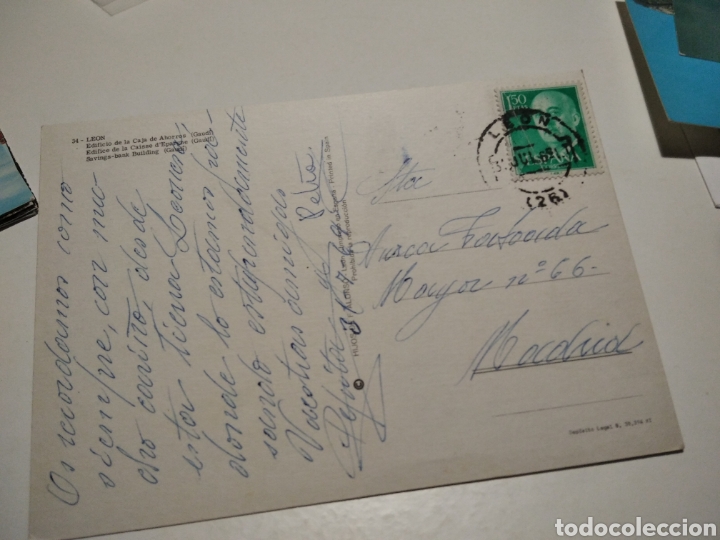 24 - LEON
Edificio de la Caja de Ahorros (Gaudí)
Edifice de la Caisse d'Epargne (Gaudí)
Savings-bank Building (Gaudí)
Os recordamos como
siempre, con mu-
cho cariño, desde
estas tierras Leonesas
donde lo estamos pa-
sando estupendamente
Vuestras amigas
Pepita y Petra
31-7-
HIJOS
Printed in Spain
1'50
PTA
LEON
(26)
Srta
Mayor nº 66-
Madrid
Depósito Legal
todocoleccion
todocoleccion.net